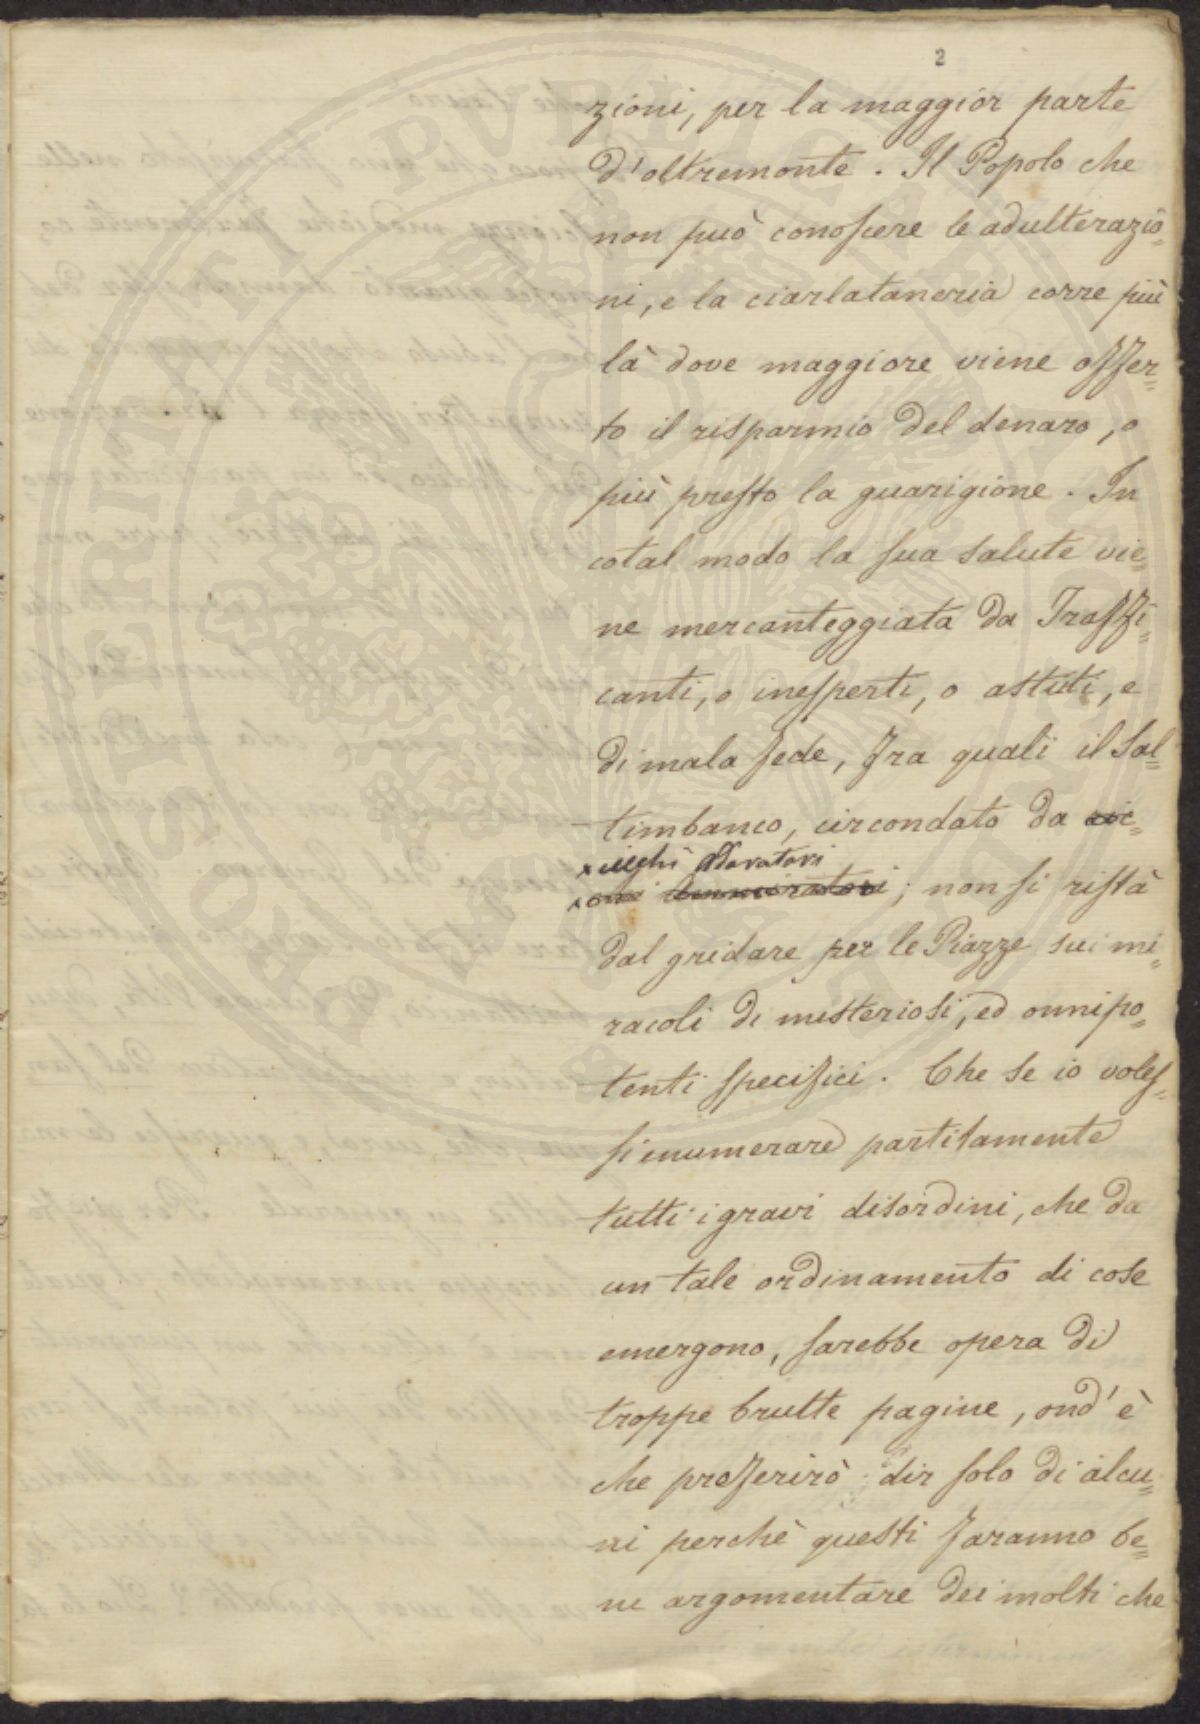 2
zioni, per la maggior parte
d'oltremonte. Il Popolo che
non può conoscere le adulterazio=
ni, e la ciarlataneria corre più
là dove maggiore viene offer=
to il risparmio del denaro, o
più presto la guarigione. In
cotal modo la sua salute vie=
ne mercanteggiata da Traffi=
canti, o inesperti, o astuti, e
di mala fede, fra quali il Sal=
timbanco, circondato da
ciechi Adoratori
; non si ristà
dal gridare per le Piazze sui mi=
racoli di misteriosi, ed onnipo=
tenti specifici. Che se io voles=
si enumerare partitamente
tutti i gravi disordini, che da
un tale ordinamento di cose
emergono, sarebbe opera di
troppe brutte pagine, ond'è
che preferirò dir solo di alcu=
ni perchè questi faranno be=
ne argomentare dei molti che